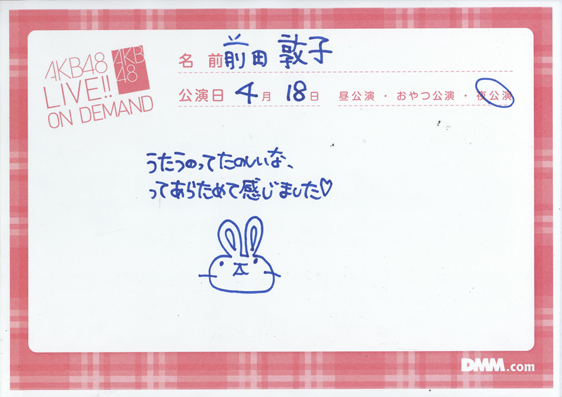 AKB48
LIVE!!
ON DEMAND
AKB
48
名 前 前田 敦子
公演日 4月 18日 昼公演・おやつ公演・夜公演
うたうのってたのしいな、
ってあらためて感じました♡
DMM.com